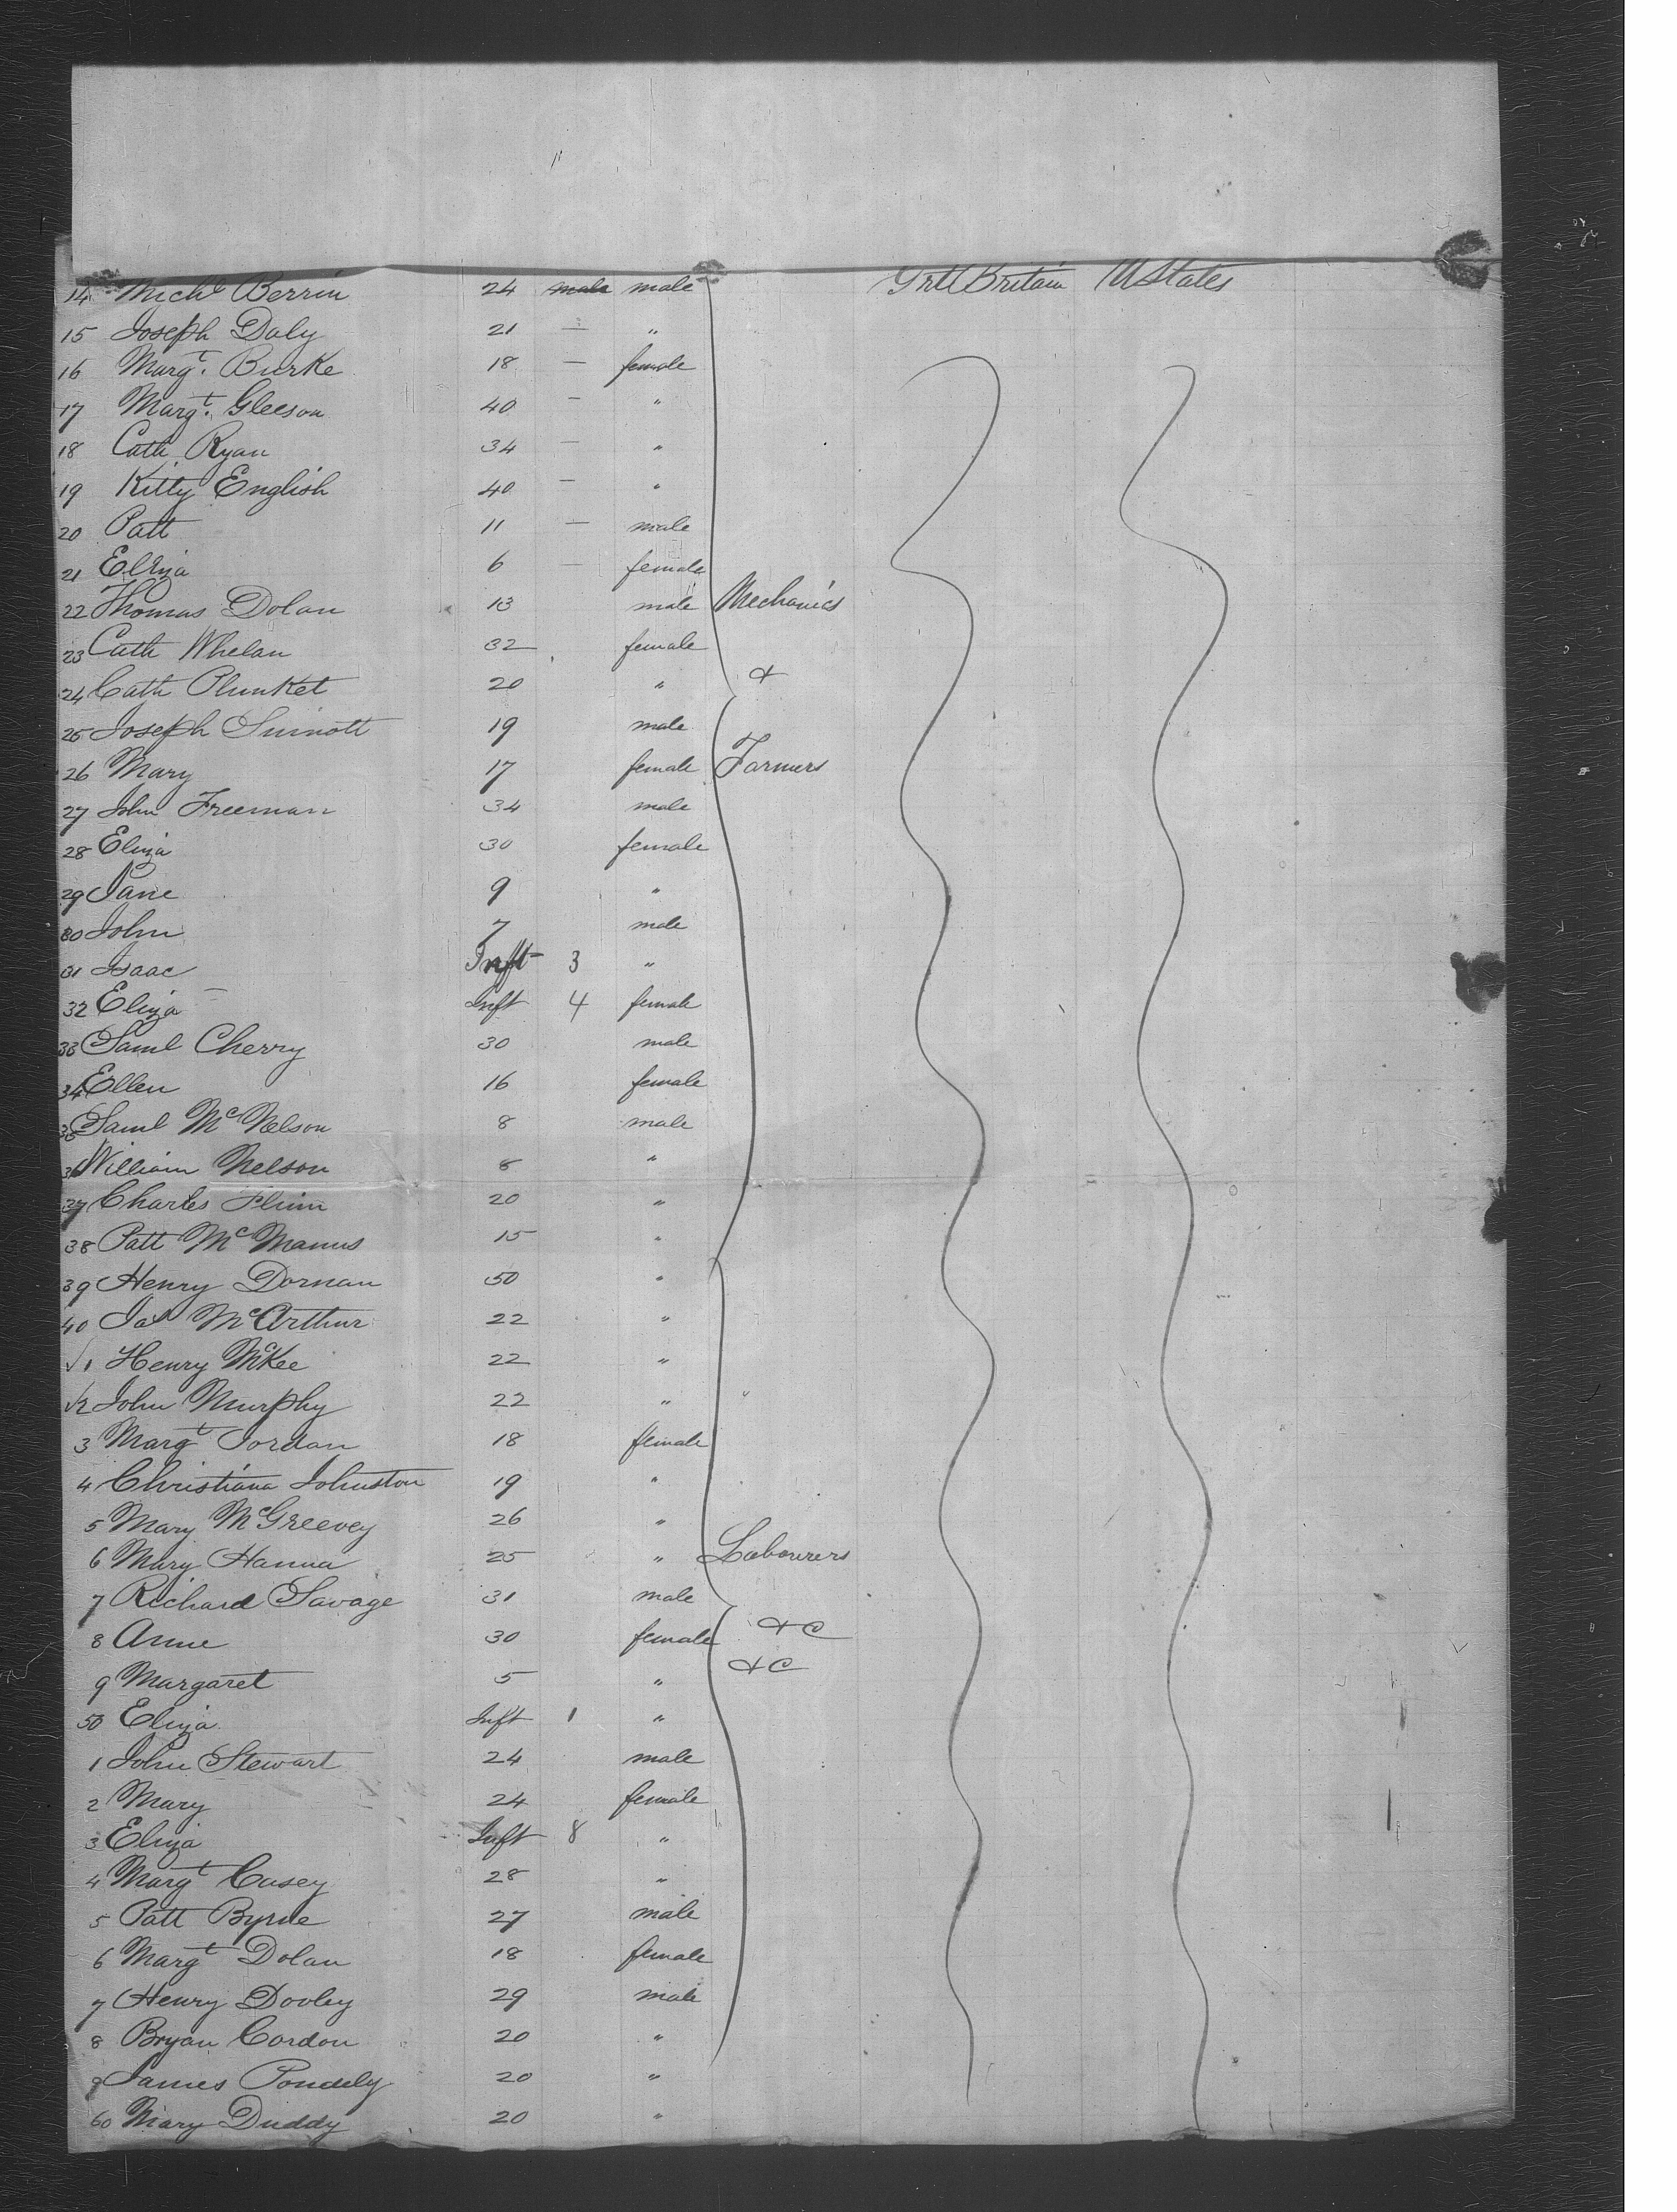 14 Michl Berrin 24 male male Grt Britain U States
15 Joseph Daly 21 — "
16 Margt. Burke 18 — female
17 Margt. Gleeson 40 — "
18 Cath Ryan 34 — "
19 Kitty English 40 — "
20 Patt 11 — male
21 Eliza 6 — female
22 Thomas Dolan 13 male Mechanics
23 Cath Whelan 32 female
24 Cath Plunket 20 " &
25 Joseph Sinnott 19 male
26 Mary 17 female Farmers
27 John Freeman 34 male
28 Eliza 30 female
29 Jane 9 "
30 John 7 male
31 Isaac Inft 3 "
32 Eliza Inft 4 female
33 Saml Cherry 30 male
34 Ellen 16 female
35 Saml McNelson 8 male
36 William Nelson 8 "
37 Charles 20 "
38 Patt McManus 15 "
39 Henry Dornan 50 "
40 Jas McArthur 22 "
√1 Henry McKee 22 "
√2 John Murphy 22 "
3 Margt Jordan 18 female
4 Christiana Johnston 19 "
5 Mary McGreevey 26 "
6 Mary Hanna 25 " Labourers
7 Richard Savage 31 male
8 Anne 30 female &C
9 Margaret 5 " &C
50 Eliza Inft 1 "
1 John Stewart 24 male
2 Mary 24 female
3 Eliza Inft 8 "
4 Margt Casey 28 "
5 Patt Byrne 27 male
6 Margt Dolan 18 female
7 Henry Dooley 29 male
8 Bryan Cordon 20 "
9 James 20 "
60 Mary Duddy 20 "